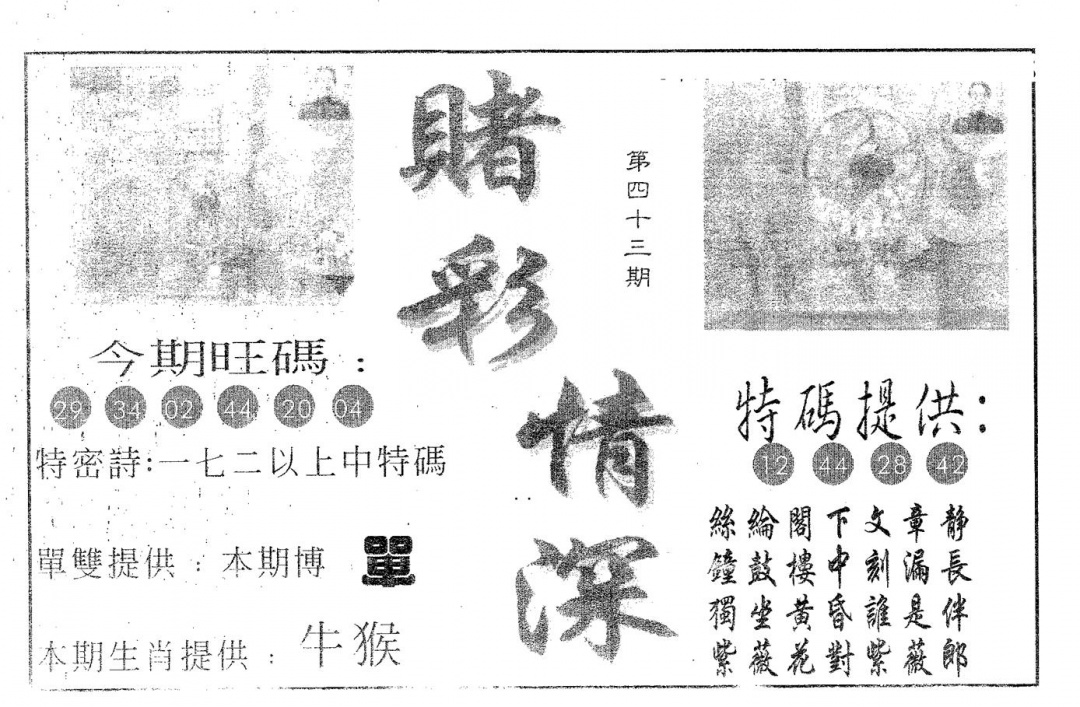 賭彩情深
第四十三期
今期旺碼：
29 34 02 44 20 04
特密詩:一七二以上中特碼
單雙提供：本期博 單
本期生肖提供：牛猴
特碼提供:
12 44 28 42
絲綸閣下文章静
鐘鼓樓中刻漏長
獨坐黃昏誰是伴
紫薇花對紫薇郎